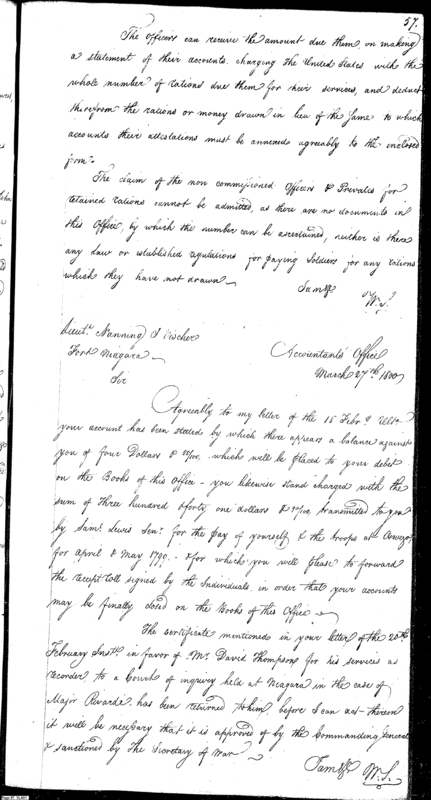 57.
The Officers can receive the amount due them, on making
a statement of their accounts, charging the United States with the
whole number of rations due them for their services, and deduct
therefrom the rations or money drawn in lieu of the same to which
accounts their attestations must be annexed agreeably to the enclosed
form.
The claim of the non commissioned Officers & Privates for
retained rations cannot be admitted, as there are no documents in
this Office, by which the number can be ascertained, neither is there
any Law or established regulations for paying Soldiers for any rations
which they have not drawn.
I am &c
W. S.
Lieut. Nanning J Visscher
Fort Niagara
Accountants Office
March 27th 1800
Sir
Agreeably to my letter of the 15 Febry. Ulto.
your account has been stated by which there appears a balance against
you of four Dollars & /100, which will be placed to your debit
on the Books of this Office - you likewise stand charged with the
sum of three hundred & forty one dollars & /100 transmitted to you
by Saml. Lewis Senr. for the pay of yourself & the troops at Oswego,
for April & May 1799. - & for which you will please to forward
the receipt roll signed by the Individuals in order that your accounts
may be finally closed on the Books of this Office.
The sertificate mentioned in your letter of the 20th
February Inst. in favor of Mr. David Thompson for his services as
recorder to a Court of inquiry held at Niagara in the case of
Major Rivardi has been returned to him, before I can act thereon
it will be necessary that it is approved of by the Commanding General
& sanctioned by the Secretary of War
I am &c
W. S.